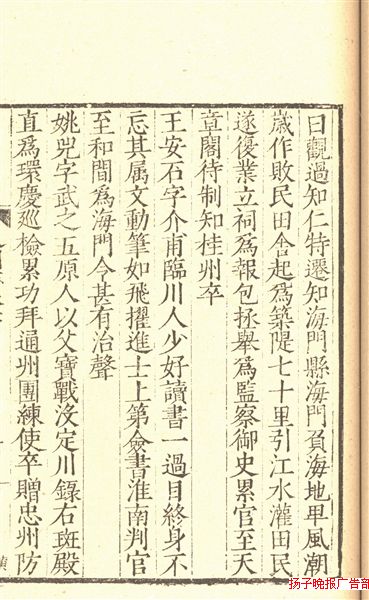 日觀過知仁特遷知海門縣海門負海地卑風潮
歲作敗民田舍起爲築隄七十里引江水灌田民
遂復業立祠爲報包拯舉爲監察御史累官至天
章閣待制知桂州卒
王安石字介甫臨川人少好讀書一過目終身不
忘其属文動筆如飛擢進士上第僉書淮南判官
至和間爲海門令甚有治聲
姚兕字武之五原人以父寶戰沒定川錄右班殿
直爲環慶廵檢累功拜通州團練使卒贈忠州防
扬子晚报广告部